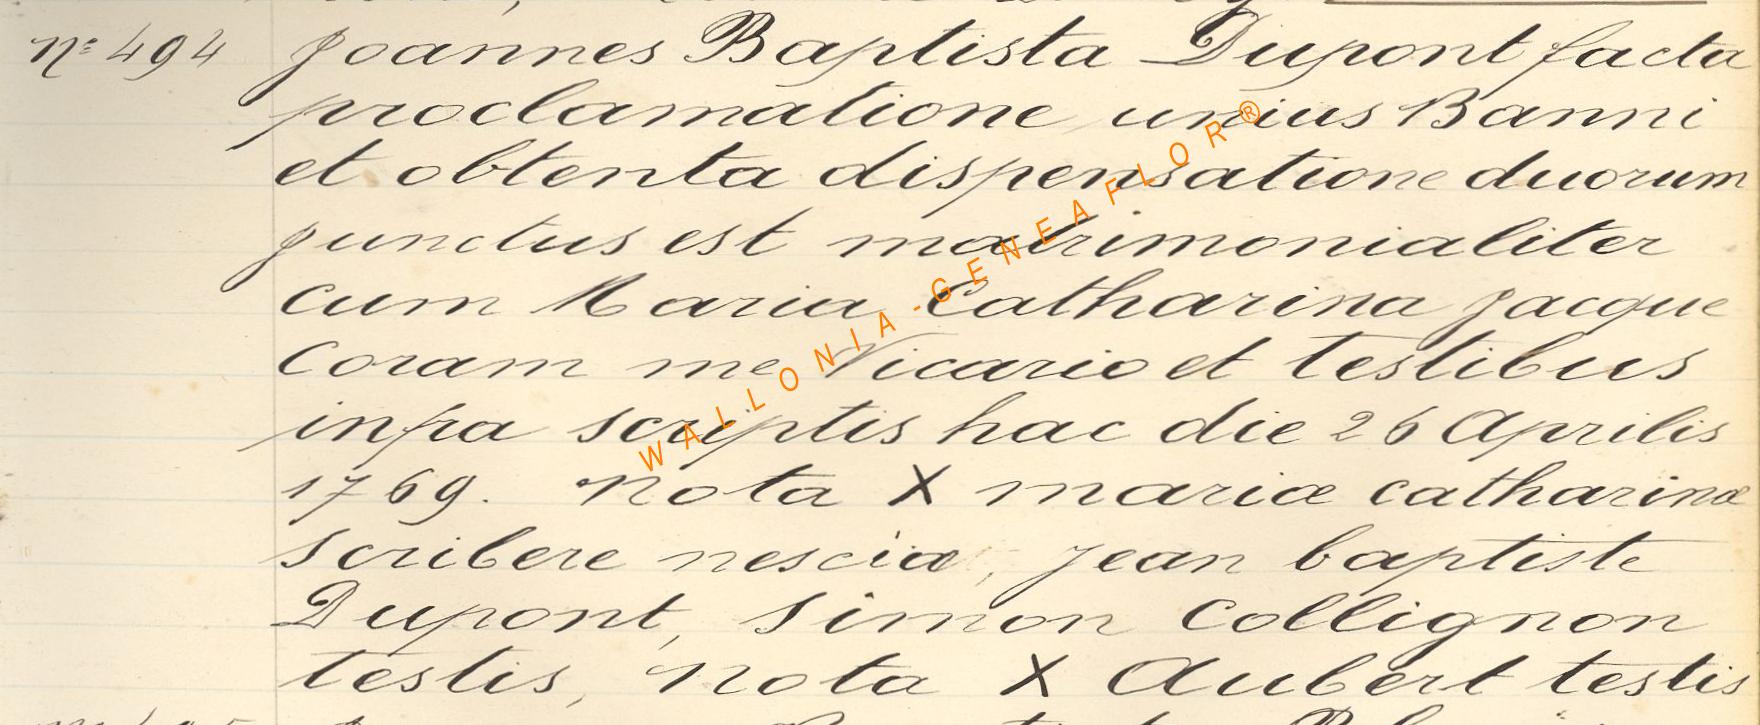 nº 494 Joannes Baptista Dupont facta
proclamatione unius Banni
et obtenta dispensatione duorum
junctus est matrimonialiter
cum Maria Catharina Jacque
Coram me Vicario et testibus
infra scriptis hac die 26 Aprilis
1769. Nota X mariæ catharinæ
scribere nesciæ, Jean baptiste
Dupont, Simon Collignon
testis, Nota X Aubert testis
WALLONIA-GENEAFLOR®